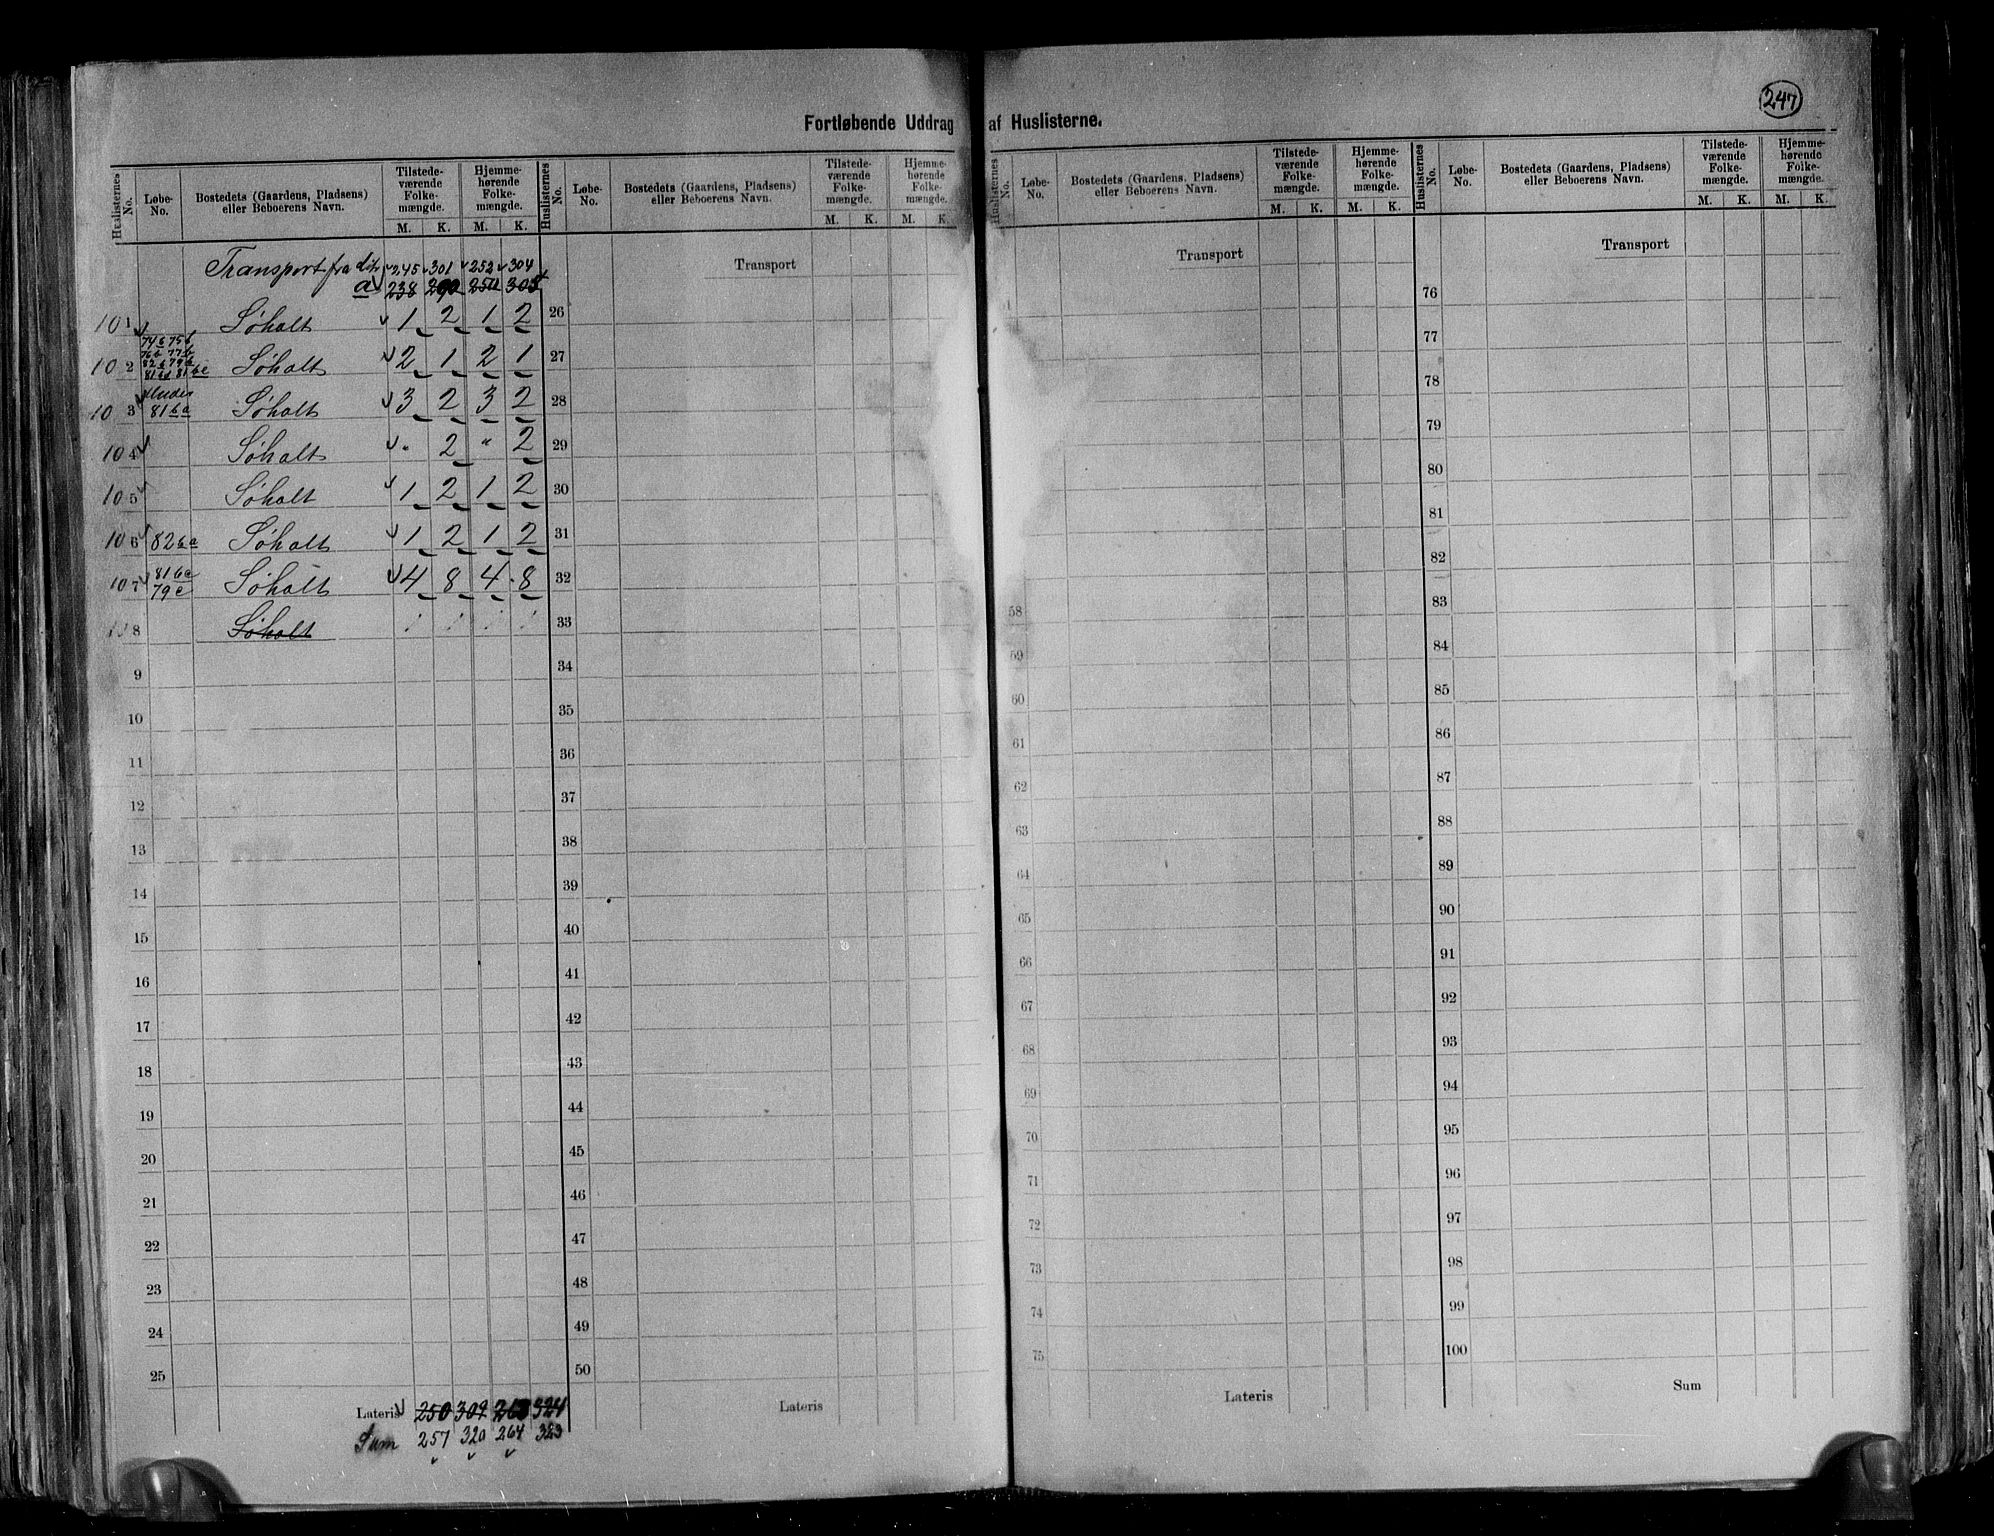 247
Fortløbende Uddrag af Huslisterne.
Huslisternes No. Løbe-No. Bostedets (Gaardens, Pladsens) eller Beboerens Navn. Tilstedeværende Folkemængde. Hjemmehørende Folkemængde.
M. K. M. K.
Huslisternes No. Løbe-No. Bostedets (Gaardens, Pladsens) eller Beboerens Navn. Tilstedeværende Folkemængde. Hjemmehørende Folkemængde.
M. K. M. K.
Huslisternes No. Løbe-No. Bostedets (Gaardens, Pladsens) eller Beboerens Navn. Tilstedeværende Folkemængde. Hjemmehørende Folkemængde.
M. K. M. K.
Huslisternes No. Løbe-No. Bostedets (Gaardens, Pladsens) eller Beboerens Navn. Tilstedeværende Folkemængde. Hjemmehørende Folkemængde.
M. K. M. K.
Transport fra 245 301 252 304
a 238 290
101 Søholt 1 2 1 2
74 b 75 b
76 b 77 b
82 b 79 b
102 Søholt 2 1 2 1
103 81 b a Søholt 3 2 3 2
104 Søholt " 2 " 2
105 Søholt 1 2 1 2
106 82 b a Søholt 1 2 1 2
81 b c
107 79 c Søholt 4 8 4 8
8 Søholt
9
10
11
12
13
14
15
16
17
18
19
20
21
22
23
24
25
Lateris 250 309 263 324
Sum 257 320 264 323
Transport
26
27
28
29
30
31
32
33
34
35
36
37
38
39
40
41
42
43
44
45
46
47
48
49
50
Lateris
Transport
58
59
60
61
62
63
64
65
66
67
68
69
70
71
72
73
74
75
Lateris
Transport
76
77
78
79
80
81
82
83
84
85
86
87
88
89
90
91
92
93
94
95
96
97
98
99
100
Sum